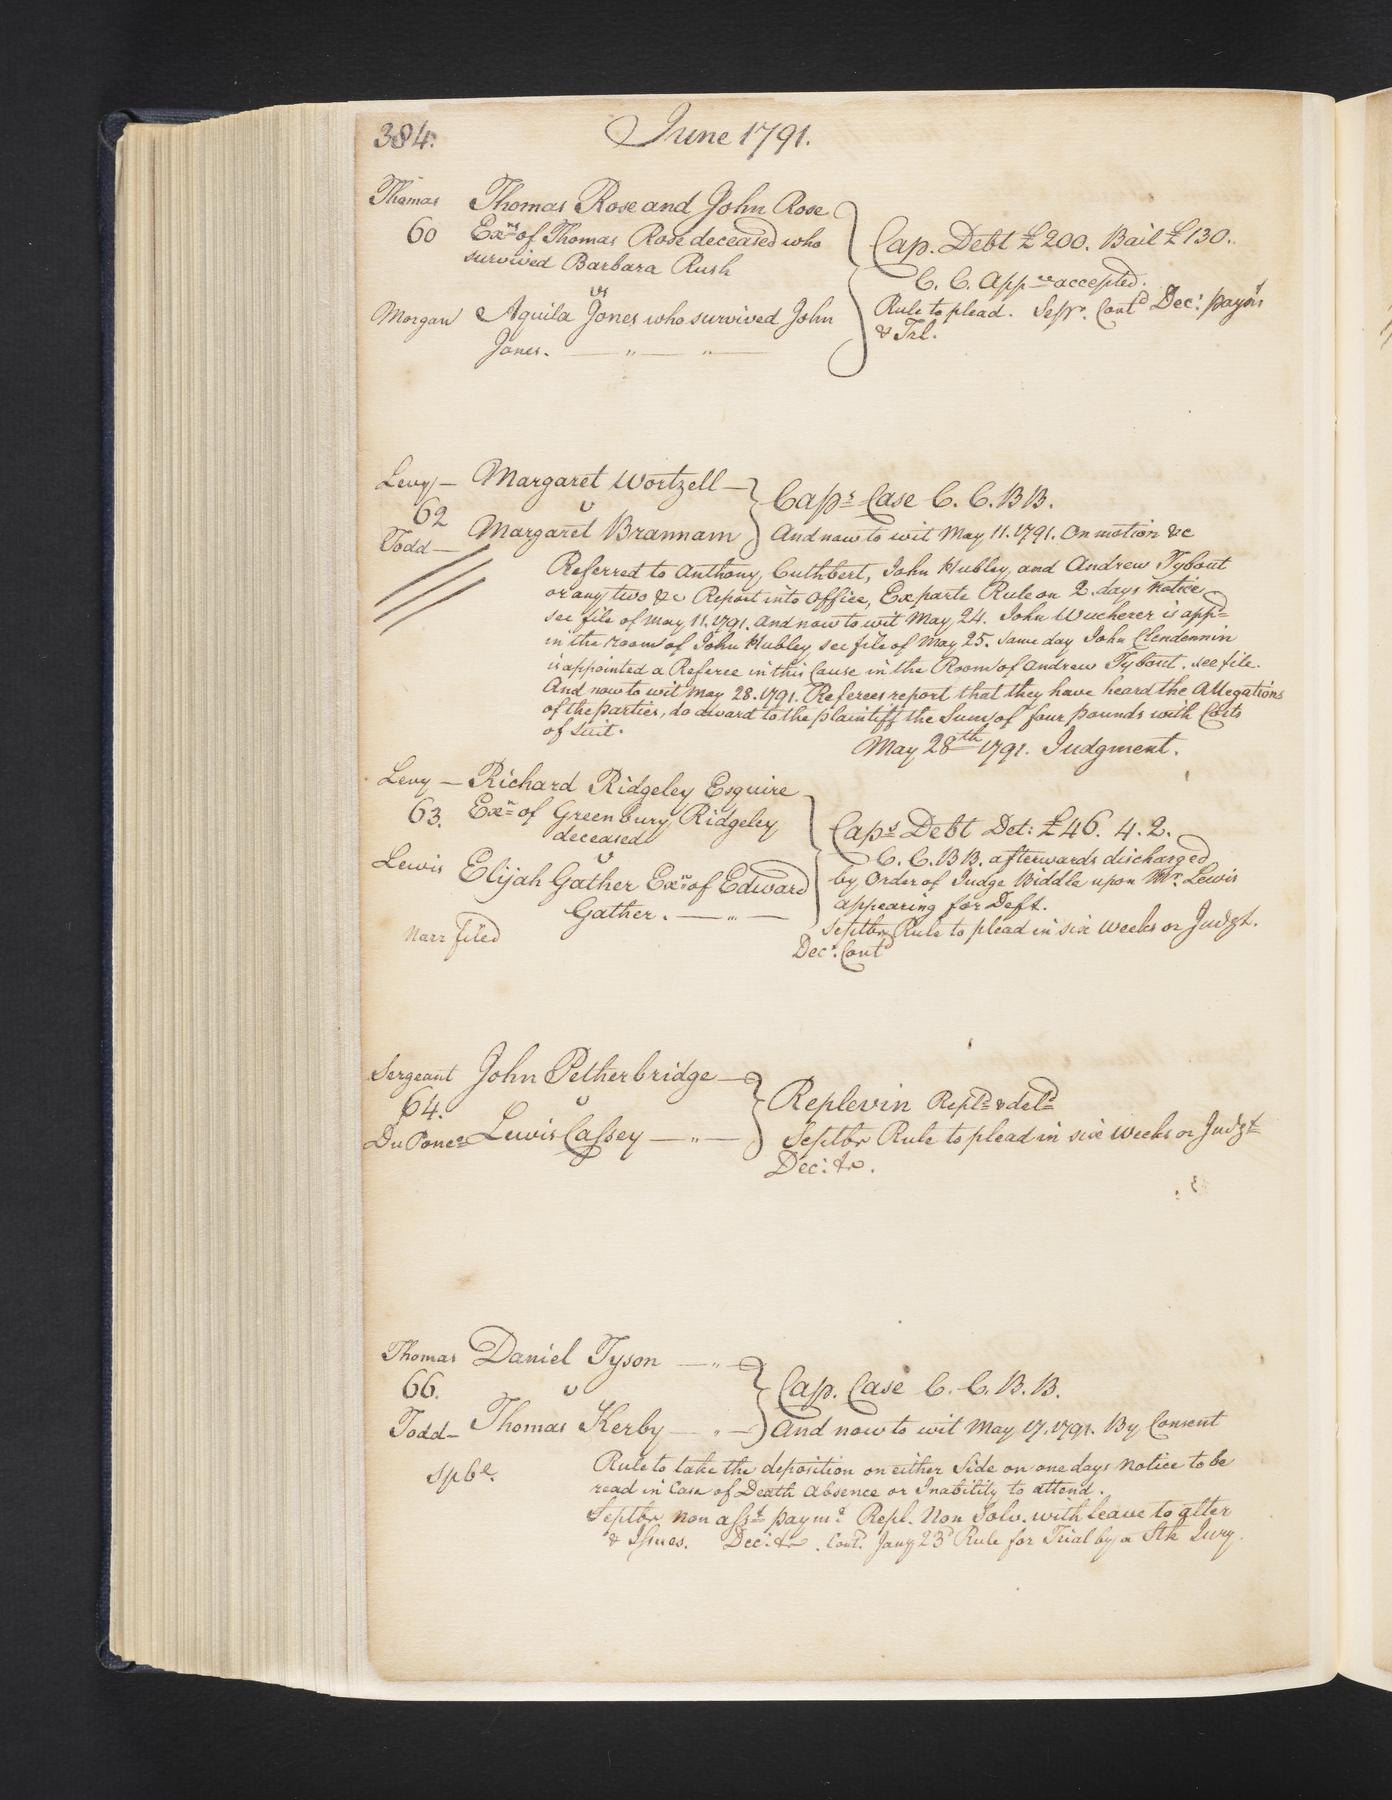 384.
June 1791.
Thomas Thomas Rose and John Rose
60 Exrs of Thomas Rose deceased who
survived Barbara Rush
vs
Morgan Aquila Jones who survived John
Jones.
Cap. Debt £200. Bail £130.
C. C. Appce accepted.
Rule to plead. Sepr. Contd Decr. paymt
& Trl.
Levy — Margaret Wortzell —
62 v
Todd — Margaret Brannam
Caps Case C. C. B B.
And now to wit May 11. 1791. On motion &c
Referred to Anthony Cuthbert, John Hubley, and Andrew Tybout
or any two &c Report into Office, Ex parte Rule on 2. days notice
see file of May 11. 1791. And now to wit May 24. John Wucherer is appd
in the room of John Hubley see file of May 25. Same day John Clendennin
is appointed a Referee in this Cause in the Room of Andrew Tybout. see file.
And now to wit May 28. 1791. Referees report that they have heard the Allegations
of the parties, do award to the plaintiff the Sum of four pounds with Costs
of Suit.
May 28th 1791. Judgment.
Levy — Richard Ridgeley Esquire
63. Exr of Greenbury Ridgeley
deceased
v
Lewis Elijah Gather Exr of Edward
Gather. — " —
Narr filed
Caps Debt Det: £46. 4. 2.
C. C. B B. afterwards discharged
by Order of Judge Biddle upon Mr. Lewis
appearing for Deft.
Septbr Rule to plead in six weeks or Judgt.
Decr. Contd
Sergeant John Petherbridge —
64. v
DuPonco Lewis Cassey — " —
Replevin Repld & deld
Septbr Rule to plead in six weeks or Judgt
Dec: &c.
Thomas Daniel Tyson — " —
66. v
Todd — Thomas Kerby — " —
Cap. Case C. C. B. B.
And now to wit May 17. 1791. By Consent
Rule to take the deposition on either Side on one days notice to be
read in Case of Death Absence or Inability to attend.
Septbr non asst paymt Repl. Non Solv. with leave to alter
& Issues. Dec: &c. Cont. Jany 23d Rule for Trial by a Stk Jury.